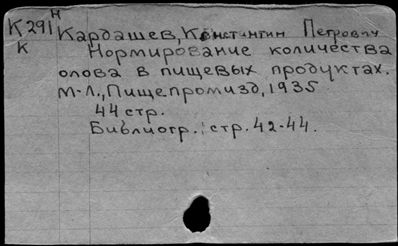 К291 Н Кардашев, Константин Петрович
К Нормирование количества
олова в пищевых продуктах.
М-Л., Пищепромизд, 1935
44 стр.
Библиогр.: стр. 42-44.